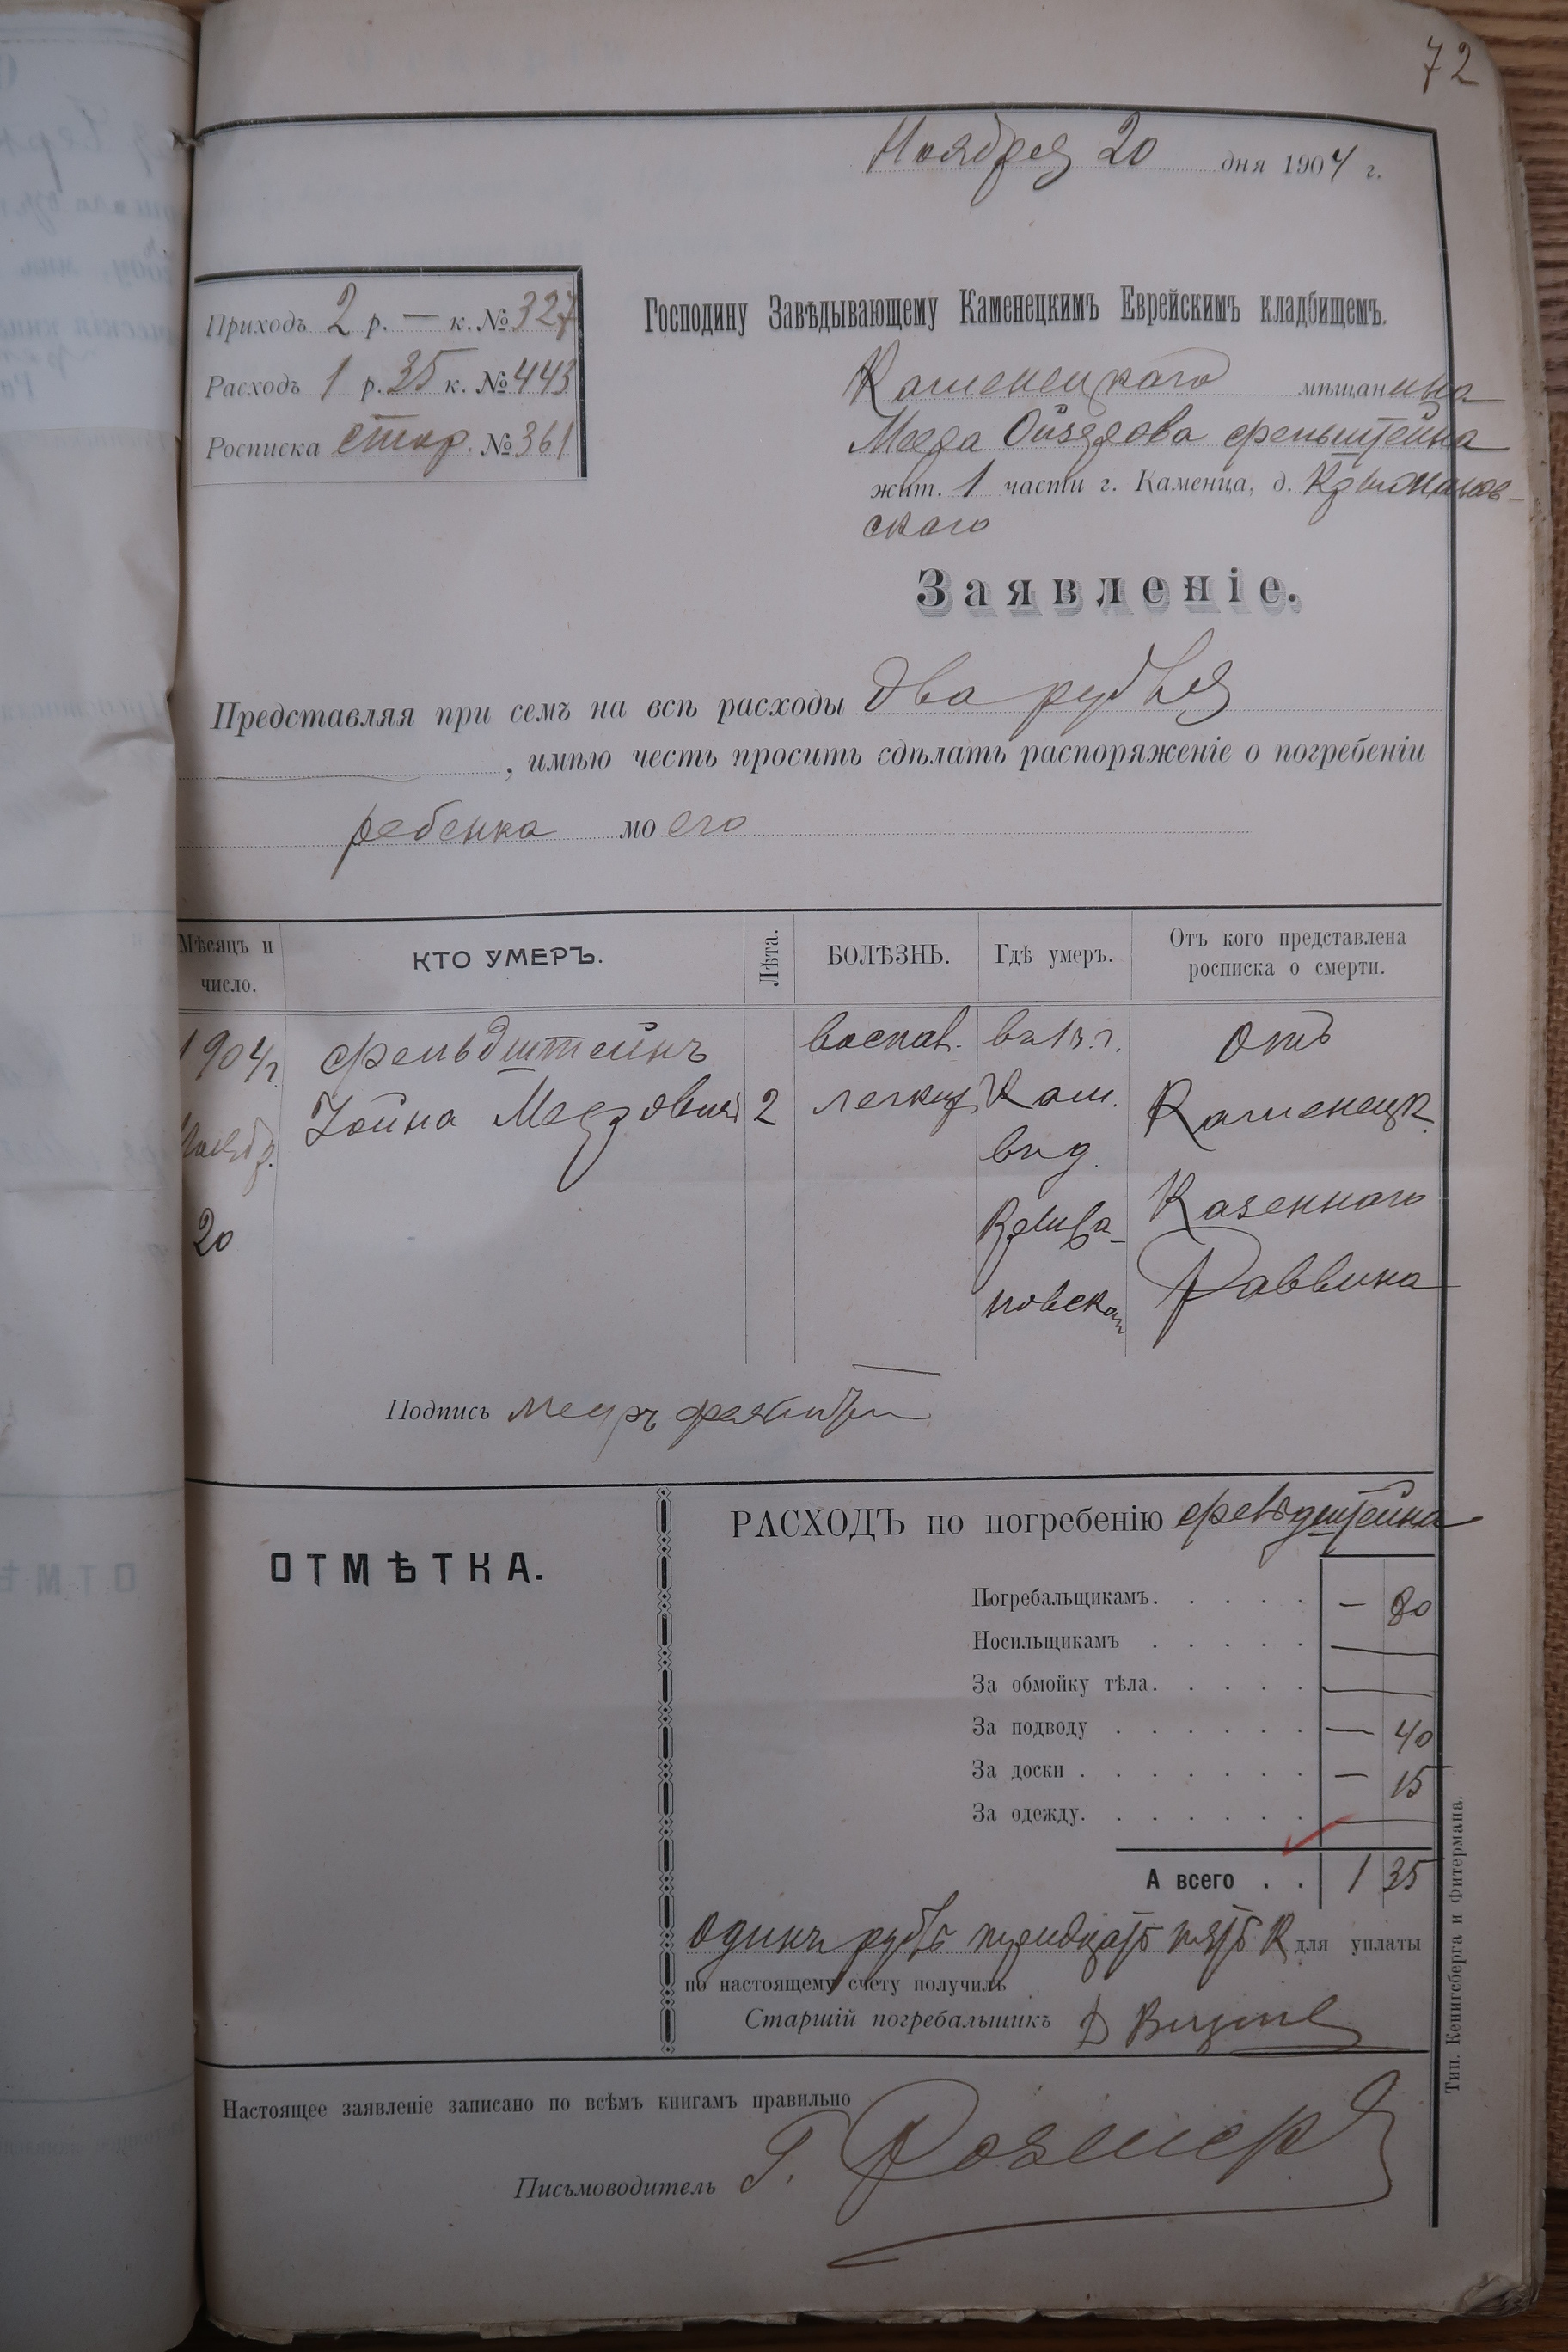 72
Ноября 20 дня 1904 г.
Приходъ 2 р. — к. № 327
Расходъ 1 р. 35 к. № 443
Росписка стор. № 361
Господину Завѣдывающему Каменецкимъ Еврейскимъ кладбищемъ.
Каменецкаго мѣщанина
жит. 1 части г. Каменца, д.
скаго
Заявленіе.
Представляя при семъ на всѣ расходы два рубля
, имѣю честь просить сдѣлать распоряженіе о погребеніи
ребенка моего
Мѣсяцъ и число.
КТО УМЕРЪ.
Лѣта.
БОЛѢЗНЬ.
Гдѣ умеръ.
Отъ кого представлена росписка о смерти.
1904 г. Фельдштейнъ воспал. въ г. отъ
Ноябр. 2 легких Кам. Каменецк.
20 Казеннаго
Раввина
Подпись
ОТМѢТКА.
РАСХОДЪ по погребенію Фельдштейна
Погребальщикамъ. . . . . — 80
Носильщикамъ . . . . . —
За обмойку тѣла. . . . . —
За подводу . . . . . . — 40
За доски . . . . . . . — 15
За одежду. . . . . . . —
А всего . . 1 35
Одинъ рубль тридцать пять К для уплаты
по настоящему счету получилъ
Старшій погребальщикъ
Настоящее заявленіе записано по всѣмъ книгамъ правильно
Письмоводитель Г.
Тип. Кенигсберга и Фитермана.